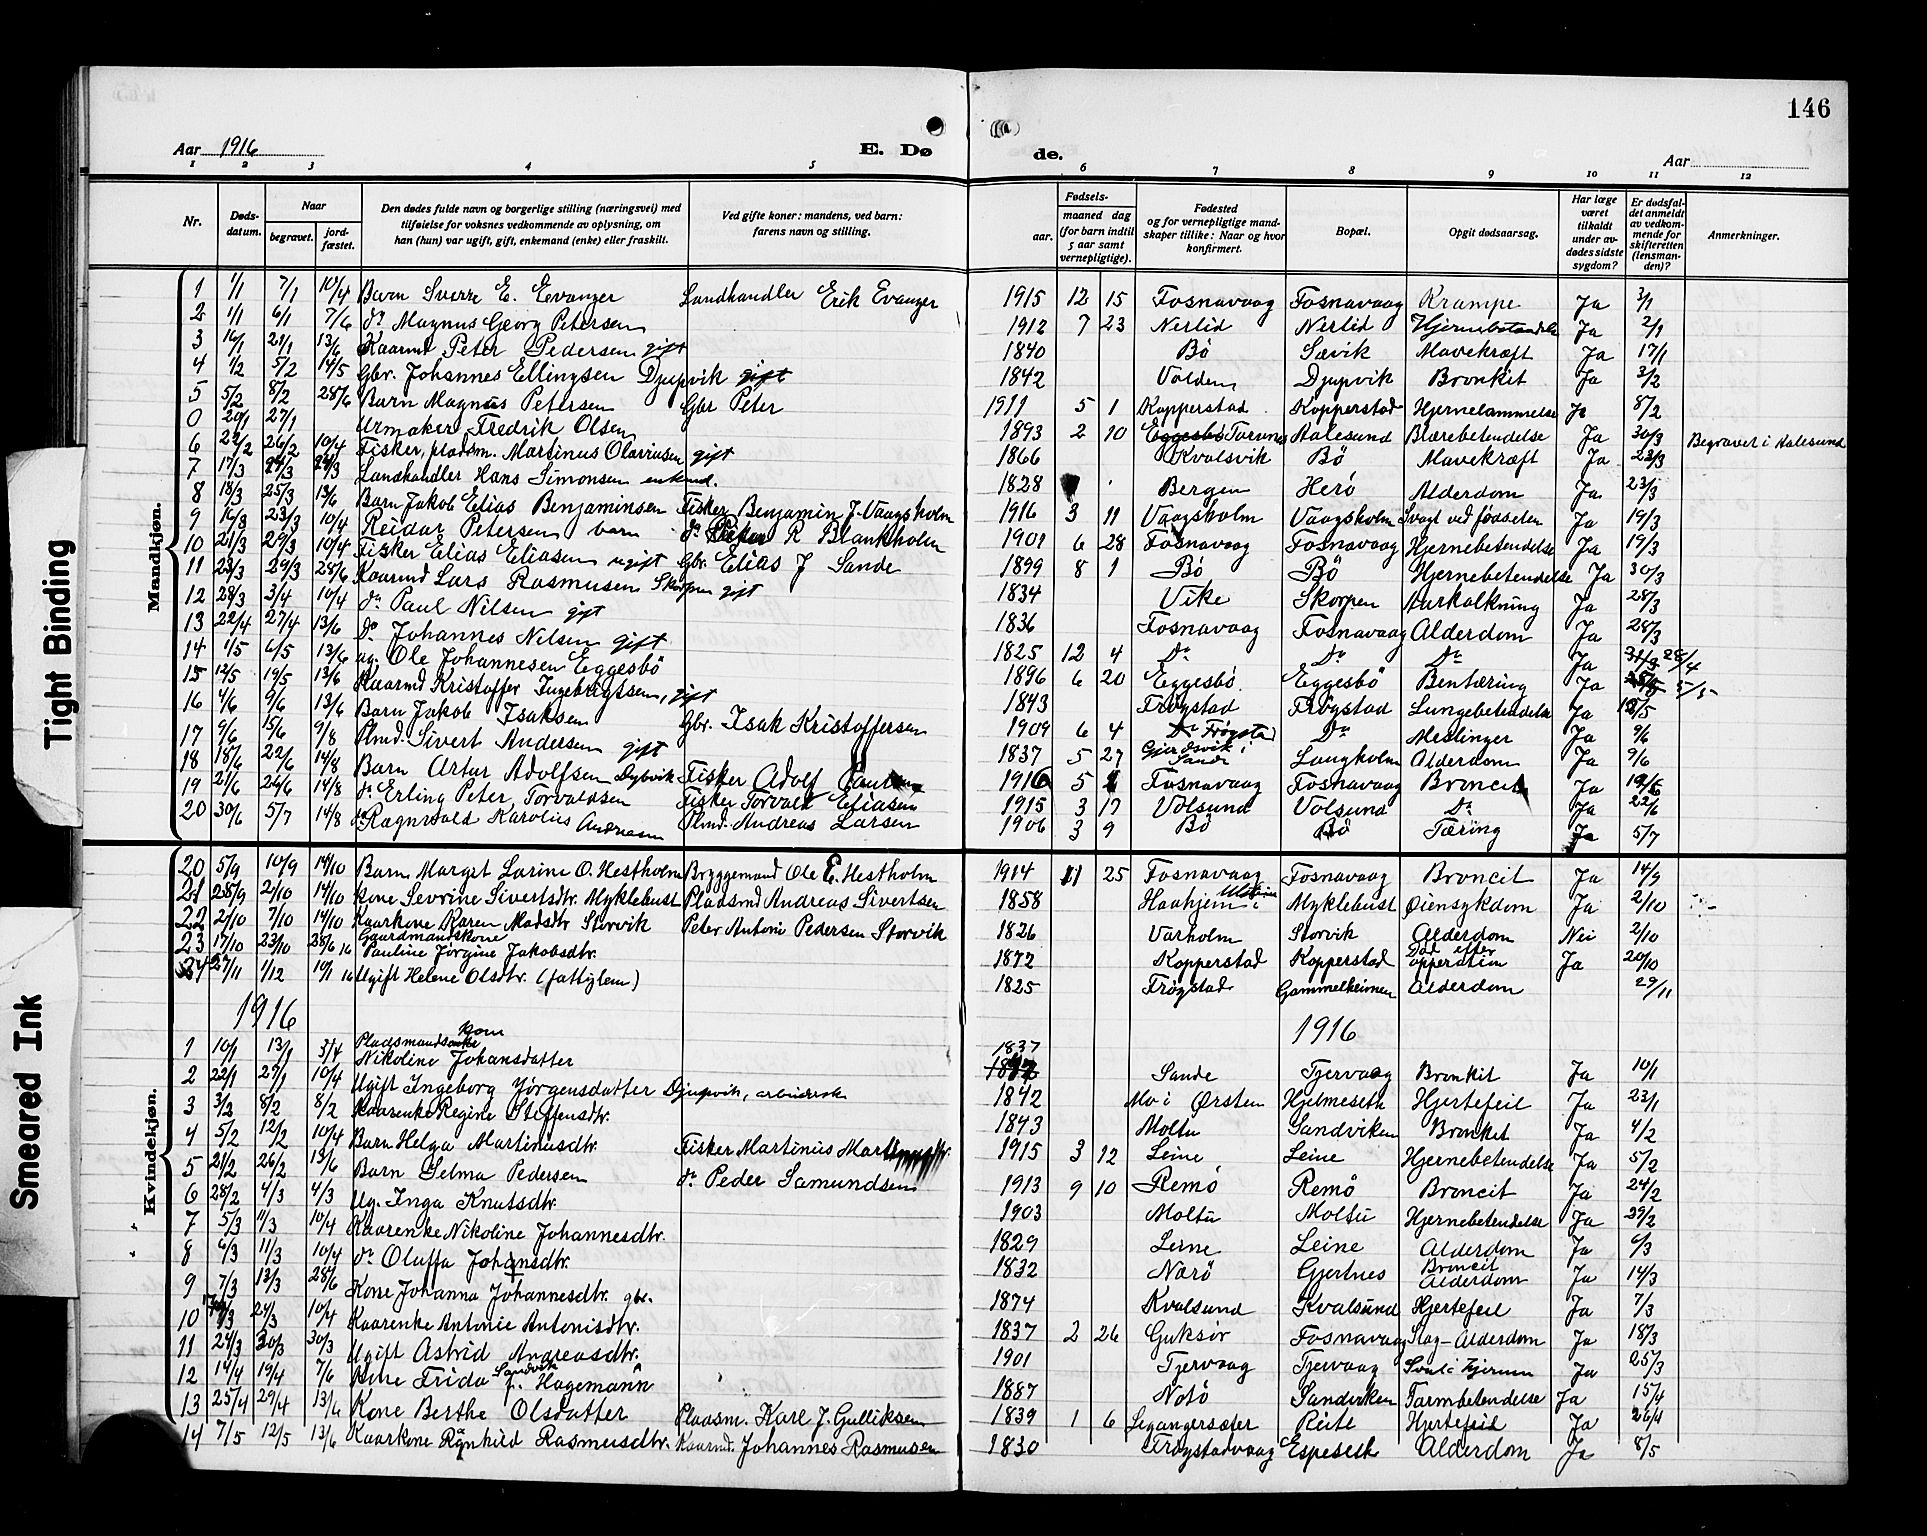 146
Aar 1916
E. Dø
de.
Aar
1 2 3 4 5 6 7 8 9 10 11 12
Nr.
Døds-
datum.
Naar
begravet.
jord-
fæstet.
Den dødes fulde navn og borgerlige stilling (næringsvei) med
tilføielse for voksnes vedkommende av oplysning, om
han (hun) var ugift, gift, enkemand (enke) eller fraskilt.
Ved gifte koner: mandens, ved barn:
farens navn og stilling.
Fødsels-
aar.
maaned dag
(for barn indtil
5 aar samt
vernepligtige).
Fødested
og for vernepligtige mand-
skaper tillike: Naar og hvor
konfirmert.
Bopæl.
Opgit dødsaarsag.
Har læge
været
tilkaldt
under av-
dødes sidste
sygdom?
Er dødsfal-
det anmeldt
av vedkom-
mende for
skifteretten
(lensman-
den)?
Anmerkninger.
Mandkjøn.
1 1/1 7/1 10/4 Barn Sverre E. Evanger Landhandler Erik Evanger 1915 12 15 Fosnavaag Fosnavaag Krampe Ja 3/1
2 1/1 6/1 7/6 do Magnus Georg Petersen 1912 7 23 Nerlid Nerlid Hjernebetændelse Ja 2/1
3 16/1 21/1 13/6 Kaarmd Peter Pedersen gift 1840 Bö Sævik Mavekræft Ja 17/1
4 1/2 5/2 14/5 Gbr. Johannes Ellingsen Djupvik gift 1842 Volden Djupvik Bronkit Ja 3/2
5 5/2 8/2 28/6 Barn Magnus Petersen Gbr Peter 1911 5 1 Kopperstad Kopperstad Hjernelammelse Ja 8/2
0 20/1 27/1 Urmaker Fredrik Olsen 1893 2 10 Eggesbö Aalesund Blærebetendelse Ja 30/3 Begravet i Aalesund
6 22/2 26/2 10/4 Fisker, pladsm. Martinus Olaviusen gift 1866 Kvalsvik Bö Mavekræft Ja 23/3
7 17/3 24/3 24/3 Landhandler Hans Simonsen enkmd. 1828 Bergen Herö Alderdom Ja 23/3
8 18/3 25/3 13/6 Barn Jakob Elias Benjaminsen Fisker Benjamin J. Vaagsholm 1916 3 11 Vaagsholm Vaagsholm Svagt ved fødselen Ja 19/3
9 16/3 23/3 10/4 Reidar Petersen barn do Peter R Blankholm 1901 6 28 Fosnavaag Fosnavaag Hjernebetendelse Ja 19/3
10 21/3 29/3 10/4 Fisker Elias Eliasen ugift Gbr. Elias J Sande 1899 8 1 Bö Bö Hjernebetendelse Ja 30/3
11 23/3 29/3 28/6 Kaarmd Lars Rasmusen Skorpen gift 1834 Vike Skorpen Aarkalkning Ja 28/3
12 28/3 3/4 10/4 do Paul Nilsen gift 1836 Fosnavaag Fosnavaag Alderdom Ja 28/3
13 22/4 27/4 13/6 Do Johannes Nilsen gift 1825 12 4 Do Do Do Ja 28/4
14 1/5 6/5 13/6 ug. Ole Johannesen Eggesbö 1896 6 20 Eggesbö Eggesbö Bentæring Ja 5/5
15 13/5 19/5 13/6 Kaarmd Kristoffer Ingebrigtsen, gift 1843 Frøystad Frøystad Lungebetendelse Ja 18/5
16 4/6 9/6 13/6 Barn Jakob Isaksen Gbr. Isak Kristoffersen 1909 6 4 Do Frøystad Do Meslinger Ja 9/6
17 9/6 15/6 9/8 Plmd. Sivert Andersen gift 1837 5 27 Gjerdsvik i Sande Langholm Alderdom Ja 9/6
18 18/6 22/6 14/8 Barn Artur Adolfsen Dybvik Fisker Adolf 1916 5 Fosnavaag Fosnavaag Broncit Ja 19/6
19 21/6 26/6 14/8 do Erling Peter Torvaldsen Fisker Torvald Eliasen 1915 3 17 Volsund Volsund Do Ja 22/6
20 30/6 5/7 14/8 do Ragnvald Karolius Andreasen Plmd. Andreas Larsen 1906 3 9 Bö Bö Tæring Ja 5/7
Kvindekjøn.
20 5/9 10/9 14/10 Barn Margit Larine O. Hestholm Bryggemand Ole E. Hestholm 1914 11 25 Fosnavaag Fosnavaag Broncit Ja 14/9
21 28/9 2/10 14/10 Kone Sevrine Sivertsdtr. Myklebust Pladsmd Andreas Sivertsen 1858 Haahjem i Ulstein Myklebust Øiensykdom Ja 2/10
22 2/10 7/10 14/10 Kaarkone Karen Madsdtr Storvik Peter Antoni Pedersen Storvik 1826 Varholm Storvik Alderdom Nei 2/10
23 17/10 23/10 28/6 16 Gaardmandskone Pauline Jörgine Jakobsdtr. 1872 Kopperstad Kopperstad Död efter opperation Ja 20/10
24 27/11 1/12 14/1 16 Ugift Helene Olsdtr. (fattiglem) 1825 Frøystad Gammelheimen Alderdom 29/11
1916 1916
1 10/1 13/1 3/4 Pladsmandskone Nikoline Johansdatter 1837 Sande Tjervaag Bronkit Ja 10/1
2 22/1 27/1 10/4 Ugift Ingeborg Jörgensdatter Djupvik, 1842 Mo i Ørsten Hjelmeseth Hjertefeil Ja 23/1
3 3/2 8/2 8/2 Kaarenke Regine Steffensdtr. 1843 Moltu Sandviken Bronket Ja 4/2
4 5/2 12/2 10/4 Barn Helga Martinusdtr. Fisker Martinus 1915 3 12 Leine Leine Hjernebetendelse Ja 5/2
5 21/2 26/2 13/6 Barn Selma Pedersen do Peder Samundsen 1913 9 10 Remö Remö Broncit Ja 24/2
6 28/2 4/3 4/3 Ug. Inga Knutsdtr. 1903 Moltu Moltu Hjernebetendelse Ja 29/2
7 5/3 11/3 10/4 Kaarenke Nikoline Johannesdtr. 1829 Leine Leine Alderdom Ja 6/3
8 6/3 11/3 10/4 do Oluffa Johansdtr. 1832 Nærö Gjertnes Broncit Alderdom Ja 14/3
9 7/3 13/3 28/6 Kone Johanna Johannesdtr. gbr. 1874 Kvalsund Kvalsund Hjertefeil Ja 7/3
10 17/3 24/3 10/4 Kaarenke Antonie Antonisdtr. 1837 2 26 Guksör Fosnavaag Slag-Alderdom Ja 18/3
11 24/3 30/3 30/3 Ugift Astrid Andreasdtr. 1901 Tjervaag Tjervaag Ja 25/3
12 14/4 19/4 7/6 Kone Frida Sandvik f. Hagemann 1887 Notö Sandviken Tarmbetendelse Ja 15/4
13 25/4 29/4 13/6 Kone Berthe Olsdatter Pladsm. Karl J. Gulliksen 1839 1 6 Leganger sæter Reite Hjertefeil Ja 26/4
14 7/5 12/5 13/6 Kaarkone Ragnhild Rasmusdtr. Kaarmd. Johannes Rasmusen 1830 Frøystadvaag Espeseth Alderdom Ja 8/5
Tight Binding
Smeared Ink